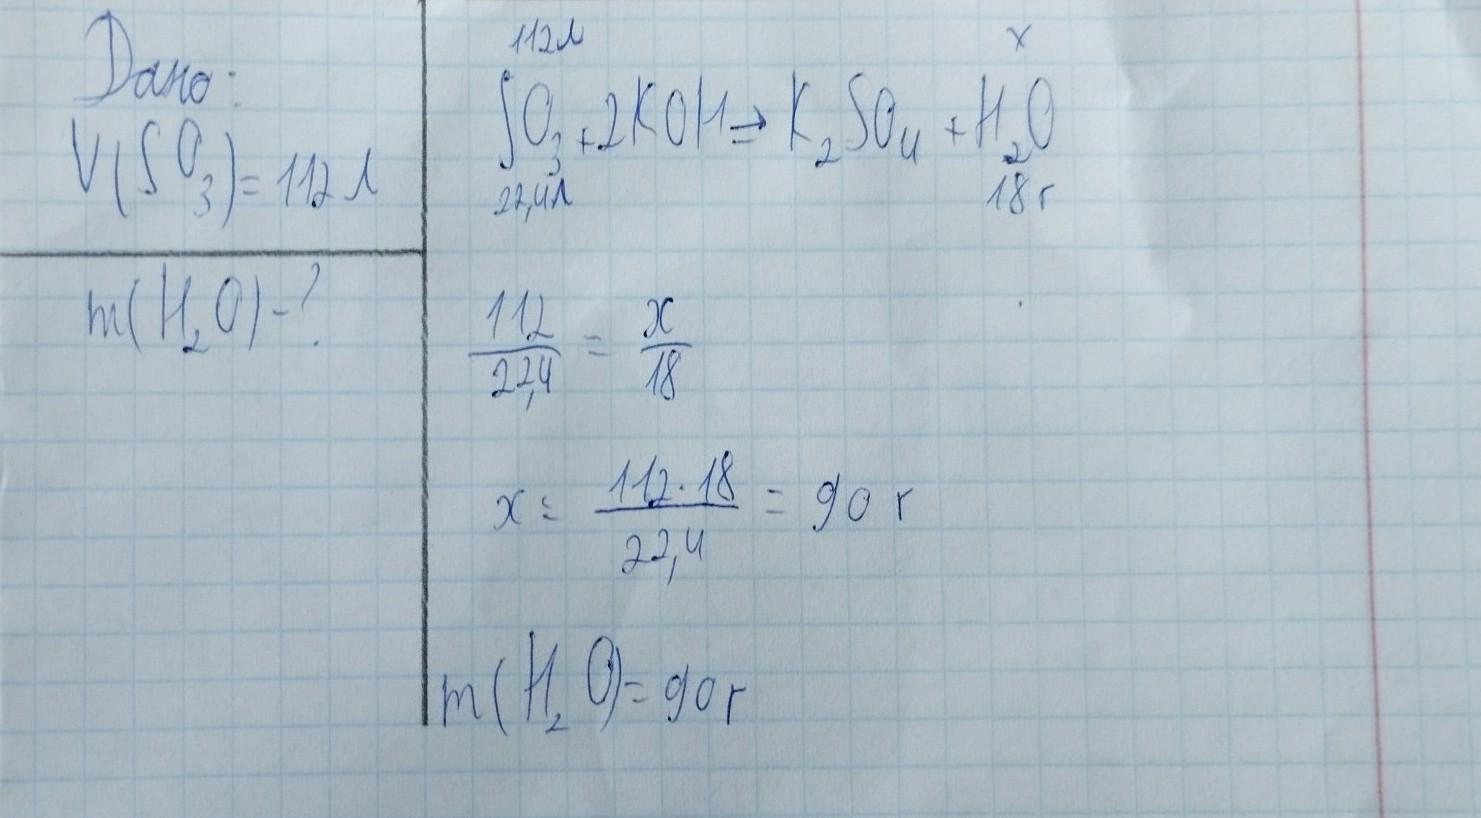 Дано:
V(SO₃) = 112 л
m(H₂O) - ?
112л x
SO₃ + 2KOH => K₂SO₄ + H₂O
22,4л 18 г
112/22,4 = x/18
x = 112·18/22,4 = 90 г
m(H₂O) = 90 г